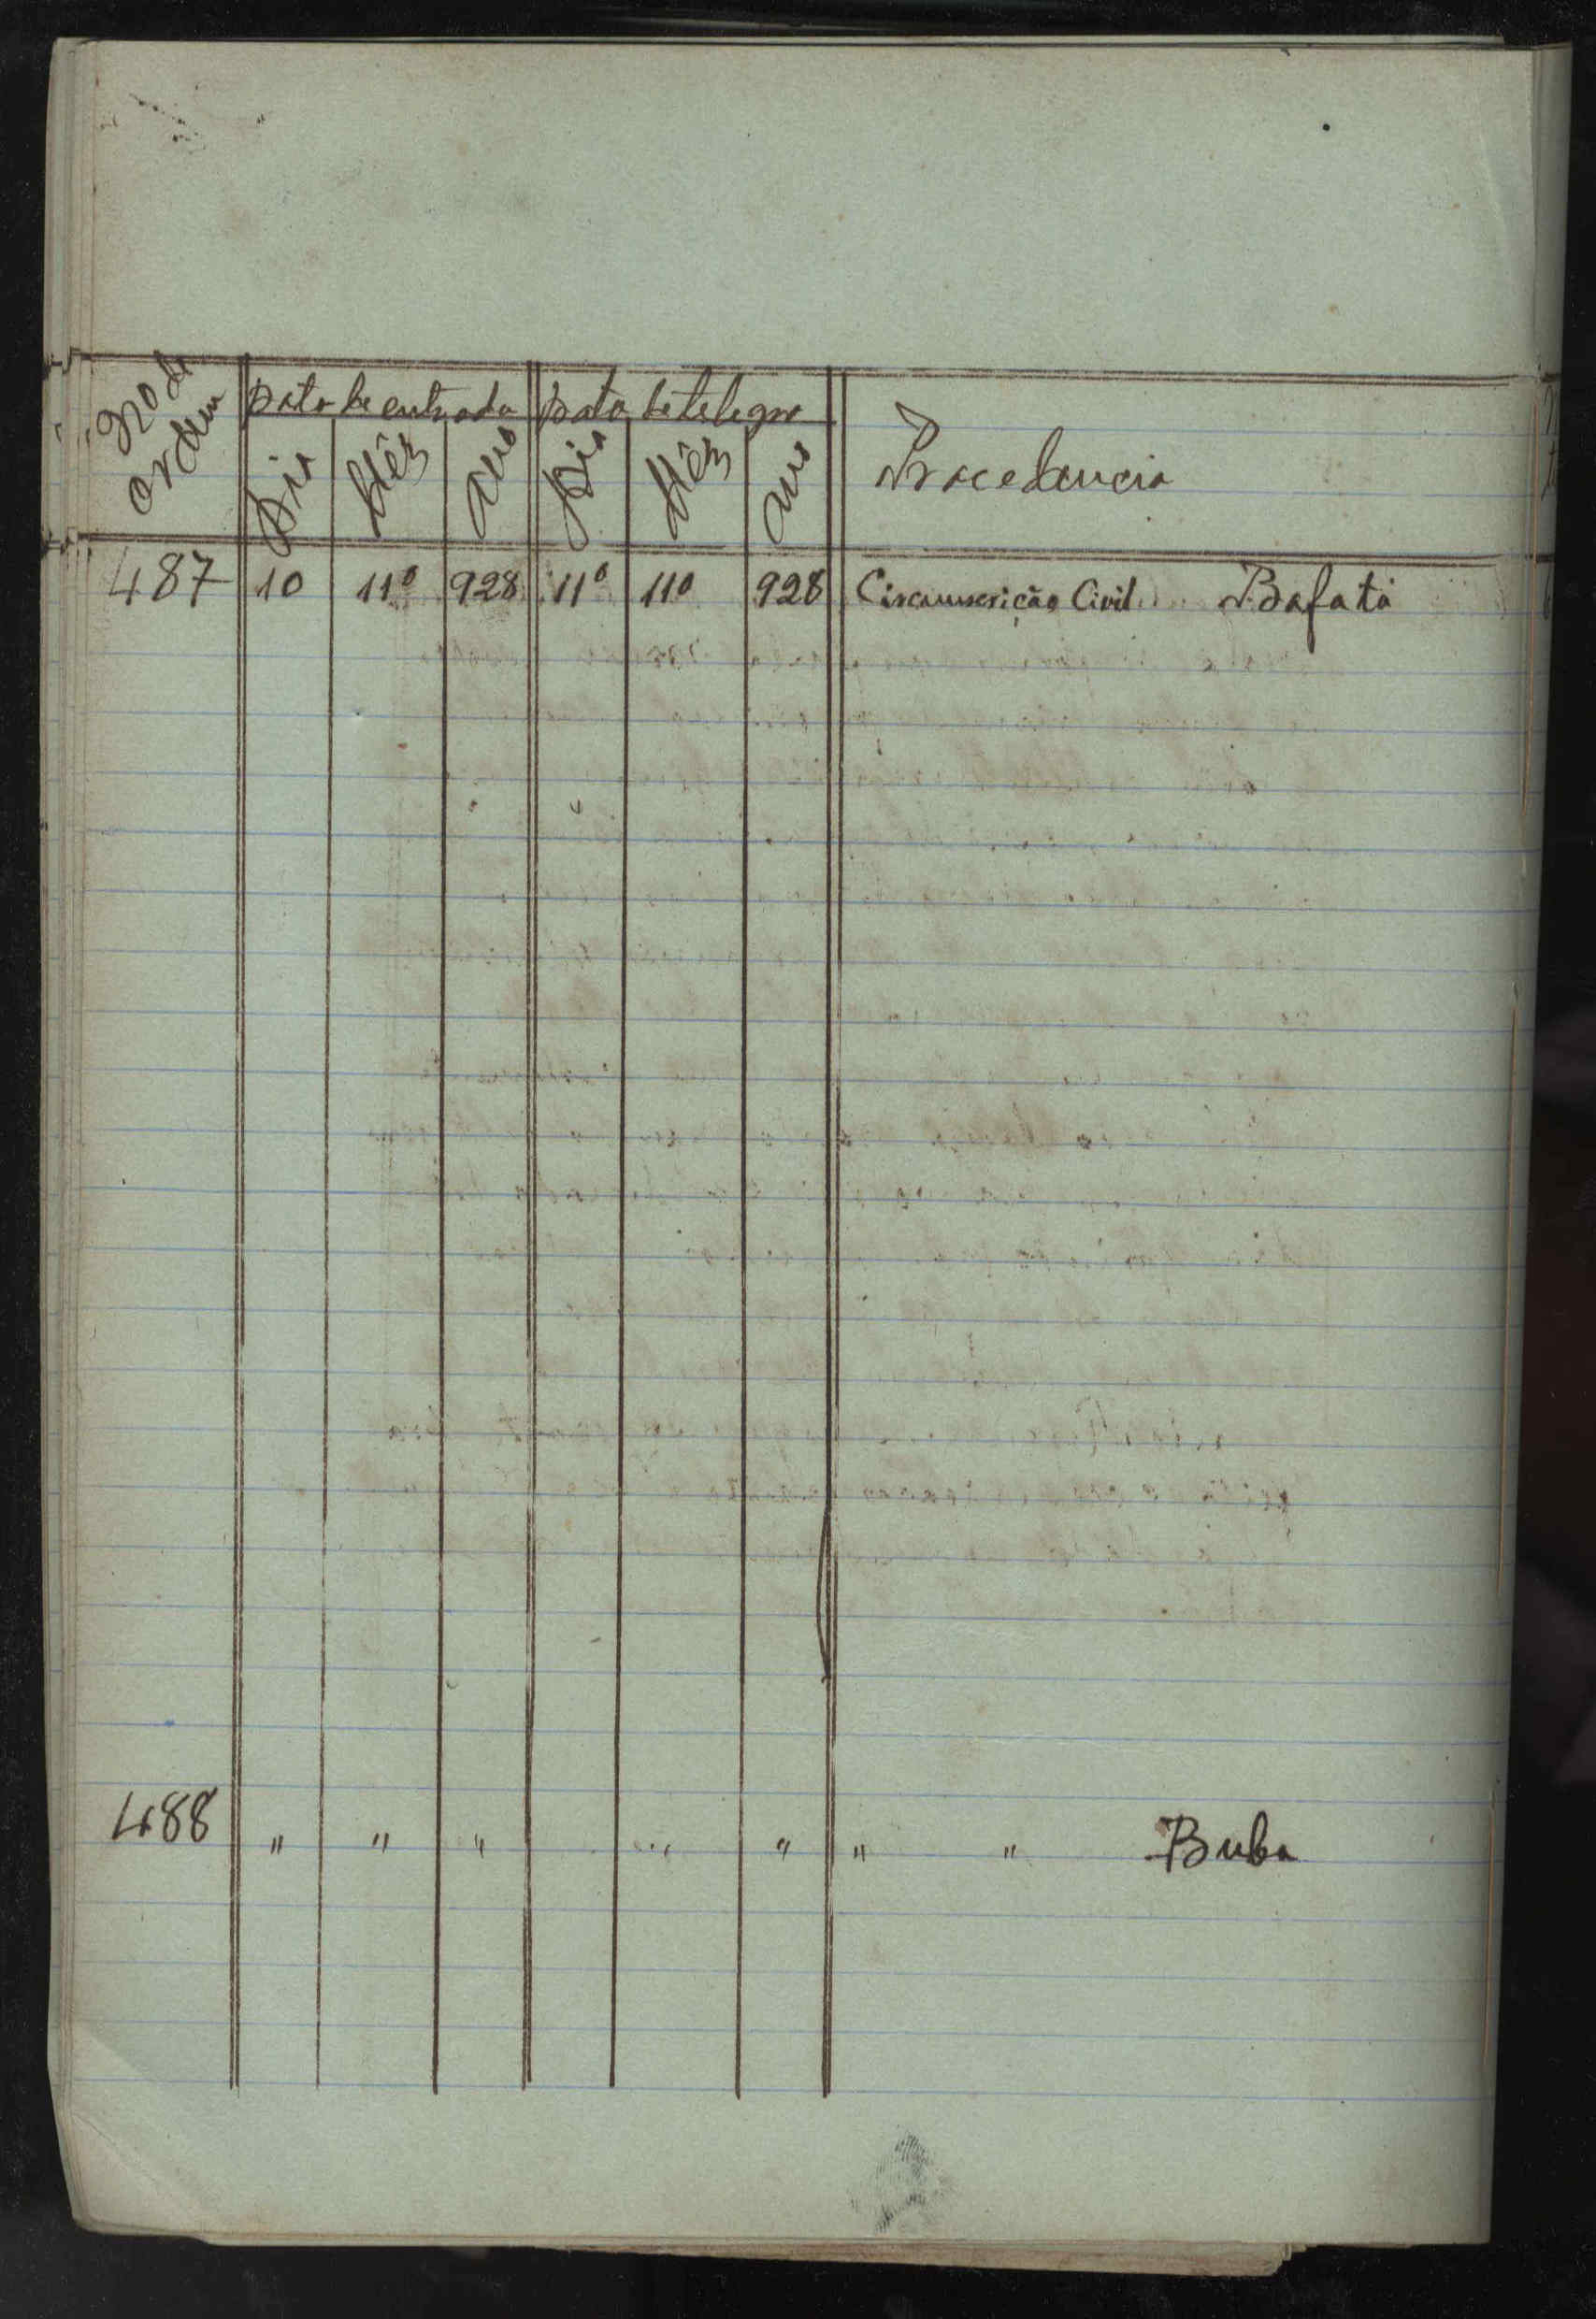 No de ordem
Data de entrada Data de telegra Procedencia
Dia Mês Ano Dia Mês Ano
487 10 11º 928 11º 11º 928 Circumscrição Civil Bafatá
488 " " " " " " " Buba